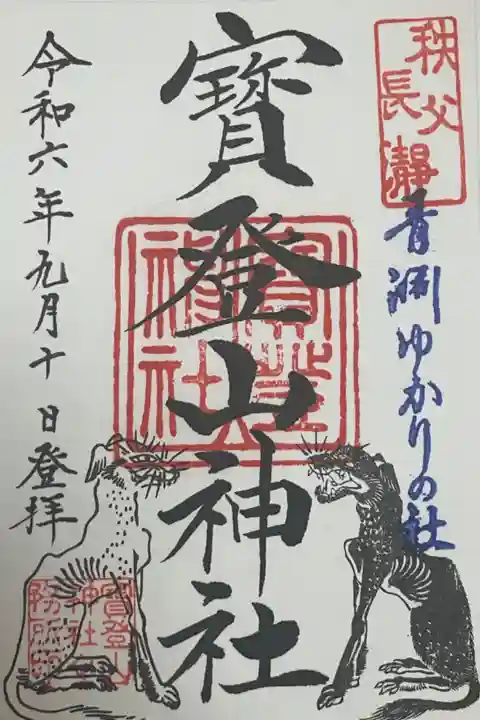 秩父
長瀞
青淵ゆかりの社
寶登山神社
寶登山
神社
令和六年九月十日登拝
寶登山
神社
務所